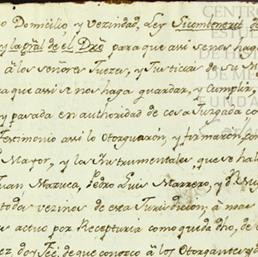 o Domicilio, y Vezindad, Ley Sicombenerit de
y la gral de el Dro para que assi se nos haga
à los señores Juezes, y Justicias de su M
ra que assi se nos haga guardar, y cumplir,
y pasada en authoridad de cosa Juzgada co
Testimonio assi lo Otorgaron, y firmaron con
Mayor, y los Instrumentales que se hal
Juan Maruca, Pedro Luis Marrero, y D
todos vezinos de esta Jurisdicion, à mas
actuo por Recepturia como queda dho, de
Doy Feé, de que conosco à los Otorgantes
CENTRO
FUNDA